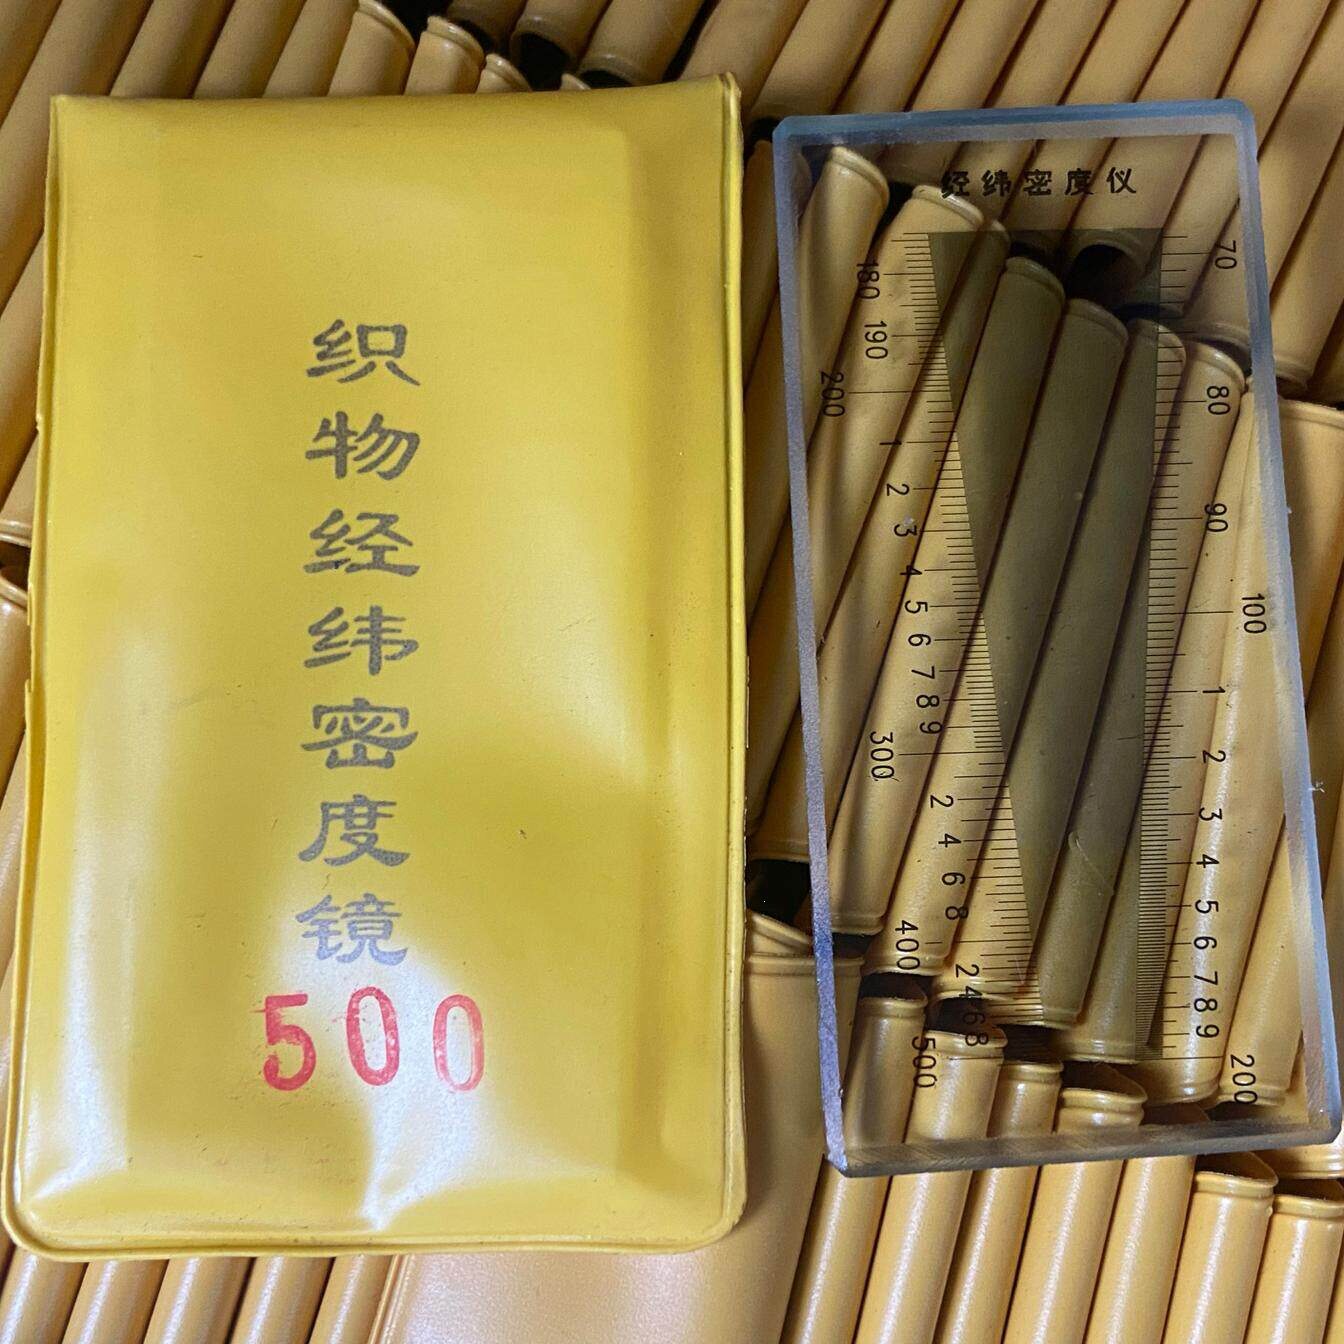 织物经纬密度镜
500
经纬密度仪
180
190
200
1
2
3
4
5
6
7
8
9
300
2
4
6
8
400
2
4
6
8
500
70
80
90
100
1
2
3
4
5
6
7
8
9
200